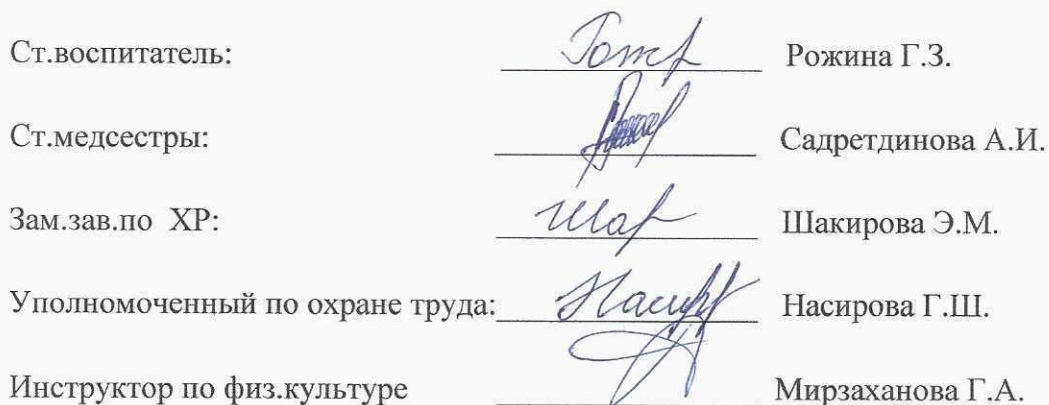 Ст.воспитатель: Рожина Г.З.
Ст.медсестры: Садретдинова А.И.
Зам.зав.по ХР: Шакирова Э.М.
Уполномоченный по охране труда: Насирова Г.Ш.
Инструктор по физ.культуре Мирзаханова Г.А.